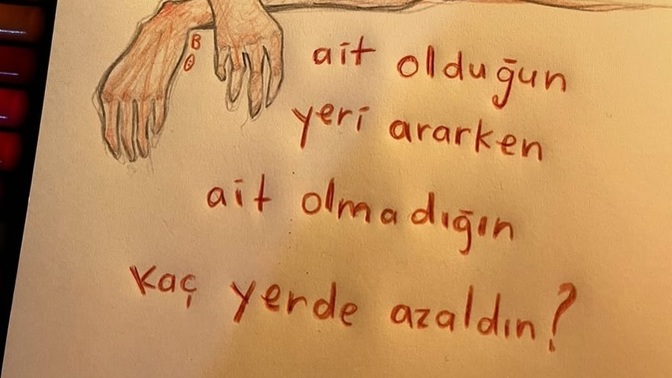 B
ait olduğun
yeri ararken
ait olmadığın
kaç yerde azaldın?